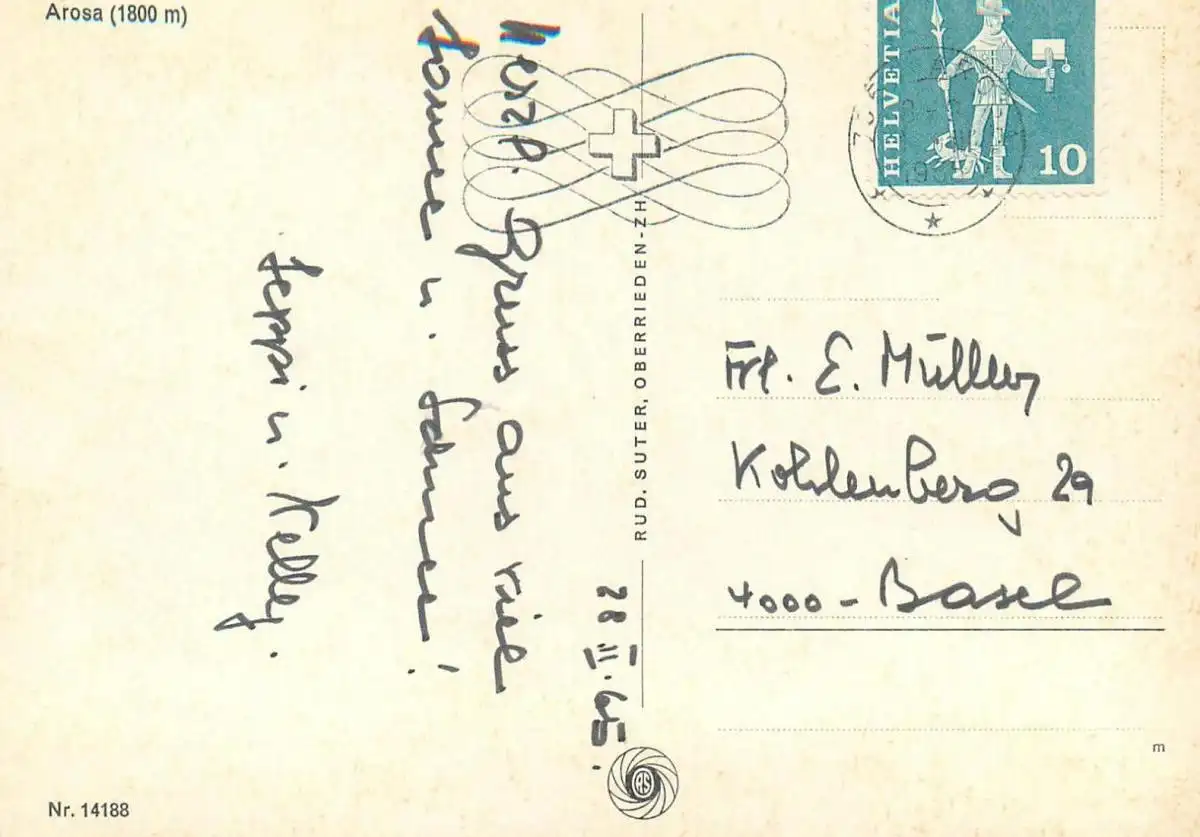 Arosa (1800 m)
28 III. 65.
Herzl. Gruss aus viel
Sonne u. Schnee!
Seppi u. Kelly.
RUD. SUTER, OBERRIEDEN-ZH
HELVETIA
10
Frl. E. Müller
Kohlenberg 29
4000 - Basel
m
Nr. 14188
RS